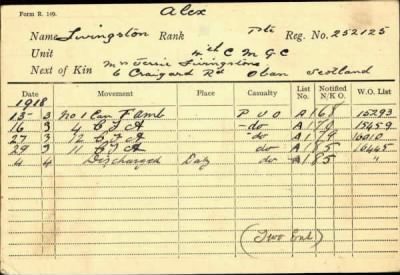 Form R. 149.
Alex
Name Livingston Rank Pte Reg. No. 252125
Unit 4th C M G C
Next of Kin Mrs Jessie Livingstone
6 Craigard Rd Oban Scotland
Date Movement Place Casualty Notified N/K O. W.O. List
1918
13- 3 No 1 Can F Amb P U O A168 15293
16 3 4 -do- A170 15459
27 3 12 -do- A179 16010
29 3 11 do A185 16445
4 4 Discharged Day do A185 "